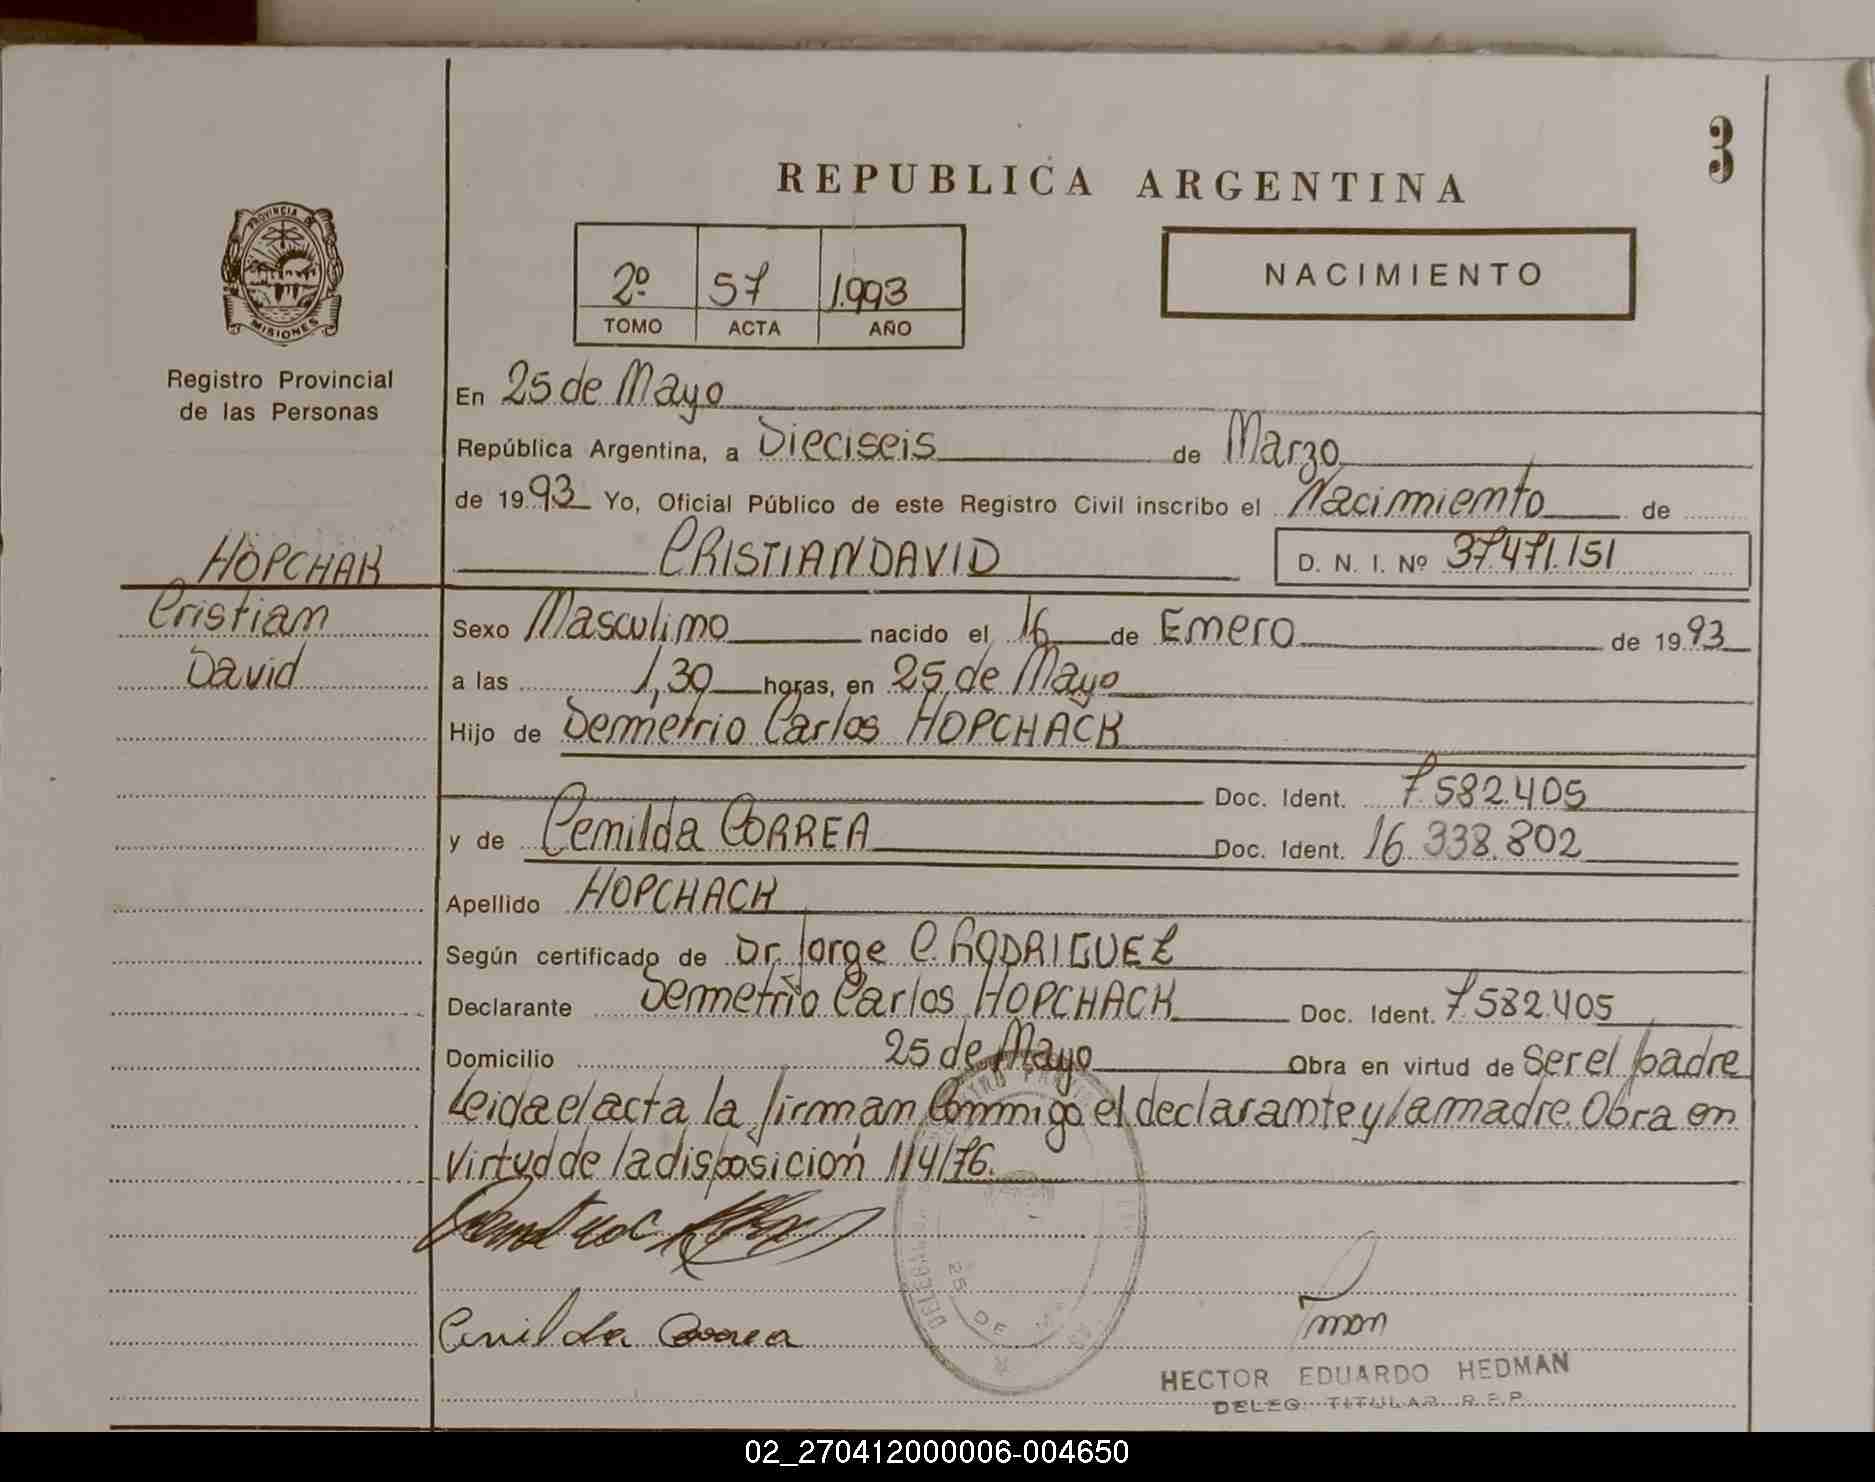 3
REPUBLICA ARGENTINA
PROVINCIA DE
MISIONES
2º 57 1.993
TOMO ACTA AÑO
NACIMIENTO
Registro Provincial
de las Personas
En 25 de Mayo
República Argentina, a Dieciseis de Marzo
de 1993 Yo, Oficial Público de este Registro Civil inscribo el Nacimiento de
HOPCHAK
CRISTIAN DAVID D. N. I. Nº 37.471.151
Cristian
David
Sexo Masculino nacido el 16 de Enero de 1993
a las 1,30 horas, en 25 de Mayo
Hijo de Demetrio Carlos HOPCHACK
Doc. Ident. 7.582.405
y de Cenilda CORREA Doc. Ident. 16.338.802
Apellido HOPCHACK
Según certificado de Dr. Jorge C. RODRIGUEZ
Declarante Demetrio Carlos HOPCHACK Doc. Ident. 7.582.405
Domicilio 25 de Mayo Obra en virtud de Ser el padre
Leida el acta la firman Conmigo el declarante y la madre. Obra en
virtud de la disposición 114/76.
25 DE
Cenilda Correa
HECTOR EDUARDO HEDMAN
DELEG. TITULAR R.P.P.
02_270412000006-004650